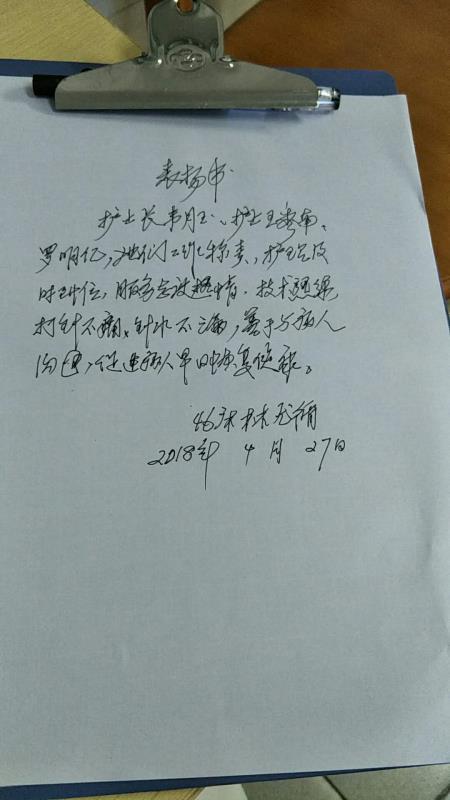 表扬书
护士长韦月玉、护士王
罗明亿,她们工作标真,护理及
时到位,服务态度热情,技术熟练
打针不痛、针水不漏,善于与病人
沟通,促进病人早日康复健康。
46床林
2018年4月27日